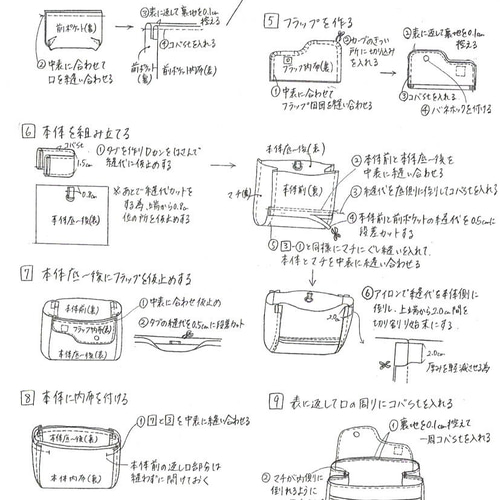 前ポケット(裏)
②中表に合わせて
口を縫い合わせる
③表に返して裏地を0.1cm
控える
④コバstを入れる
前ポケット(裏)
前ポケット内布(裏)
5 フラップを作る
②カーブのきつい
所に切り込み
を入れる
フラップ内布(裏)
①中表に合わせて
フラップ回りを縫い合せる
②表に返して裏地を0.1cm
控える
③コバstを入れる
④バネホックを付ける
6 本体を組み立てる
コバst
①タブを作りDカンをはさんで
縫代に仮止めする
1.5cm
0.8cm
本体後(表)
※あとで縫代カットを
する為、上端から0.8cm
位の所を仮止めする
本体後(表)
本体前(裏)
マチ(裏)
②本体前と本体後を
中表に縫い合わせる
③縫代を底側に倒してコバstを入れる
④本体前と前ポケットの縫代を0.5cmに
段差カットする
⑤3-①と同様にマチにぐし縫いを入れて、
本体とマチを中表に縫い合わせる
⑥アイロンで縫代を本体側に
倒し、上端から2.0cm間を
切り割り始末する
2.0cm
2.0cm
厚みを軽減させる為
7 本体後にフラップを仮止めする
本体前(裏)
フラップ内布(表)
本体後(表)
①中表に合わせ仮止め
②タブの縫代を0.5cmに段差カット
8 本体に内布を付ける
本体後(裏)
本体内布(裏)
①7と3を中表に縫い合わせる
本体前の返し口部分は
縫わずに開けておく
9 表に返して口の周りにコバstを入れる
①裏地を0.1cm控えて
一周コバstを入れる
②マチが内側に
倒れるように